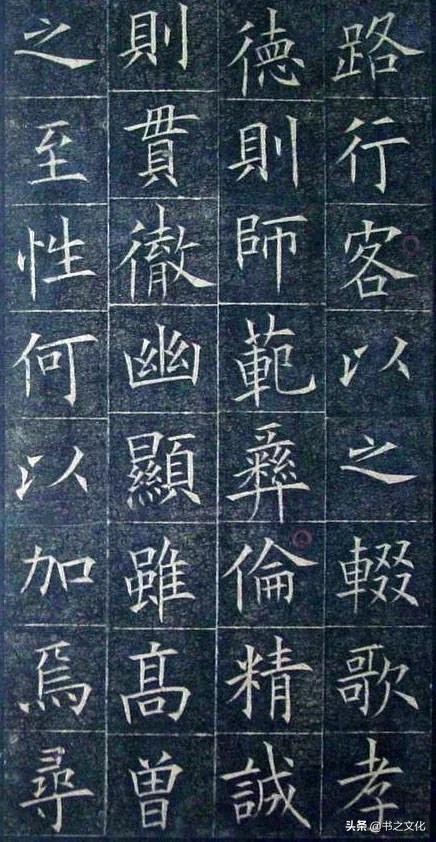 路行客以之輟歌孝
德則師範彝倫精誠
則貫徹幽顯雖髙曾
之至性何以加焉尋
头条 @书之文化